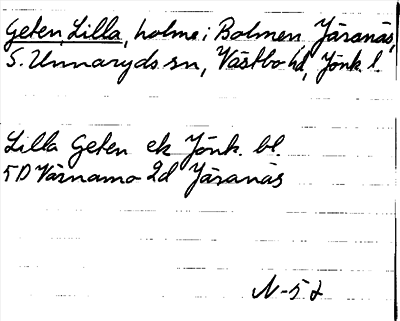 Geten, Lilla, holme i Bolmen Järanäs,
S. Unnaryds sn, Västbo hd, Jönk. l.
Lilla Geten ek Jönk. bl.
5D Värnamo 2d Järanäs
N-52